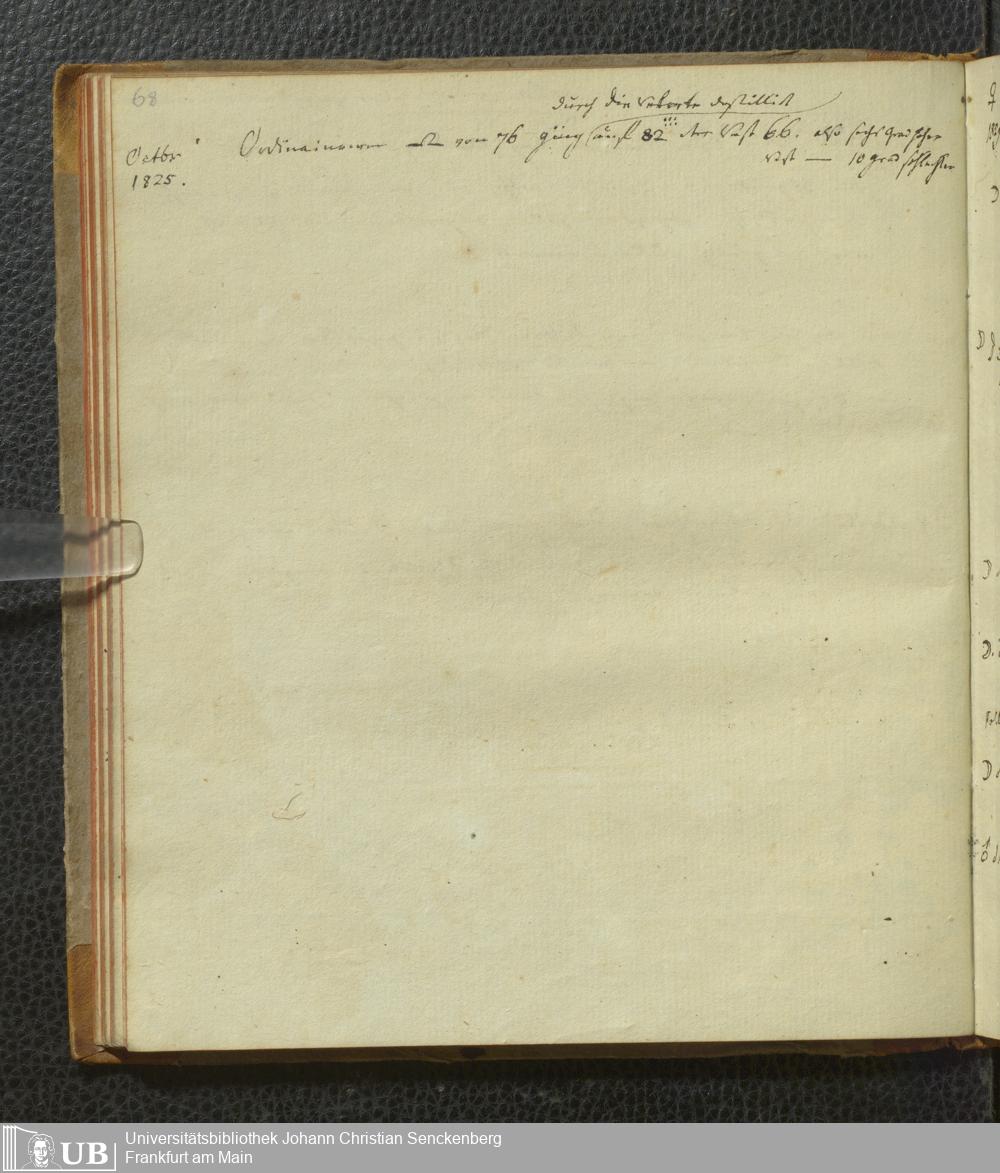 68
durch die retorte destillirt
Octbr 1825.
Ordinairer von 76 ging auf 82 der Rest 66. also sechs Grad höher
Rest — 10 grad schlechter
UB Universitätsbibliothek Johann Christian Senckenberg
Frankfurt am Main